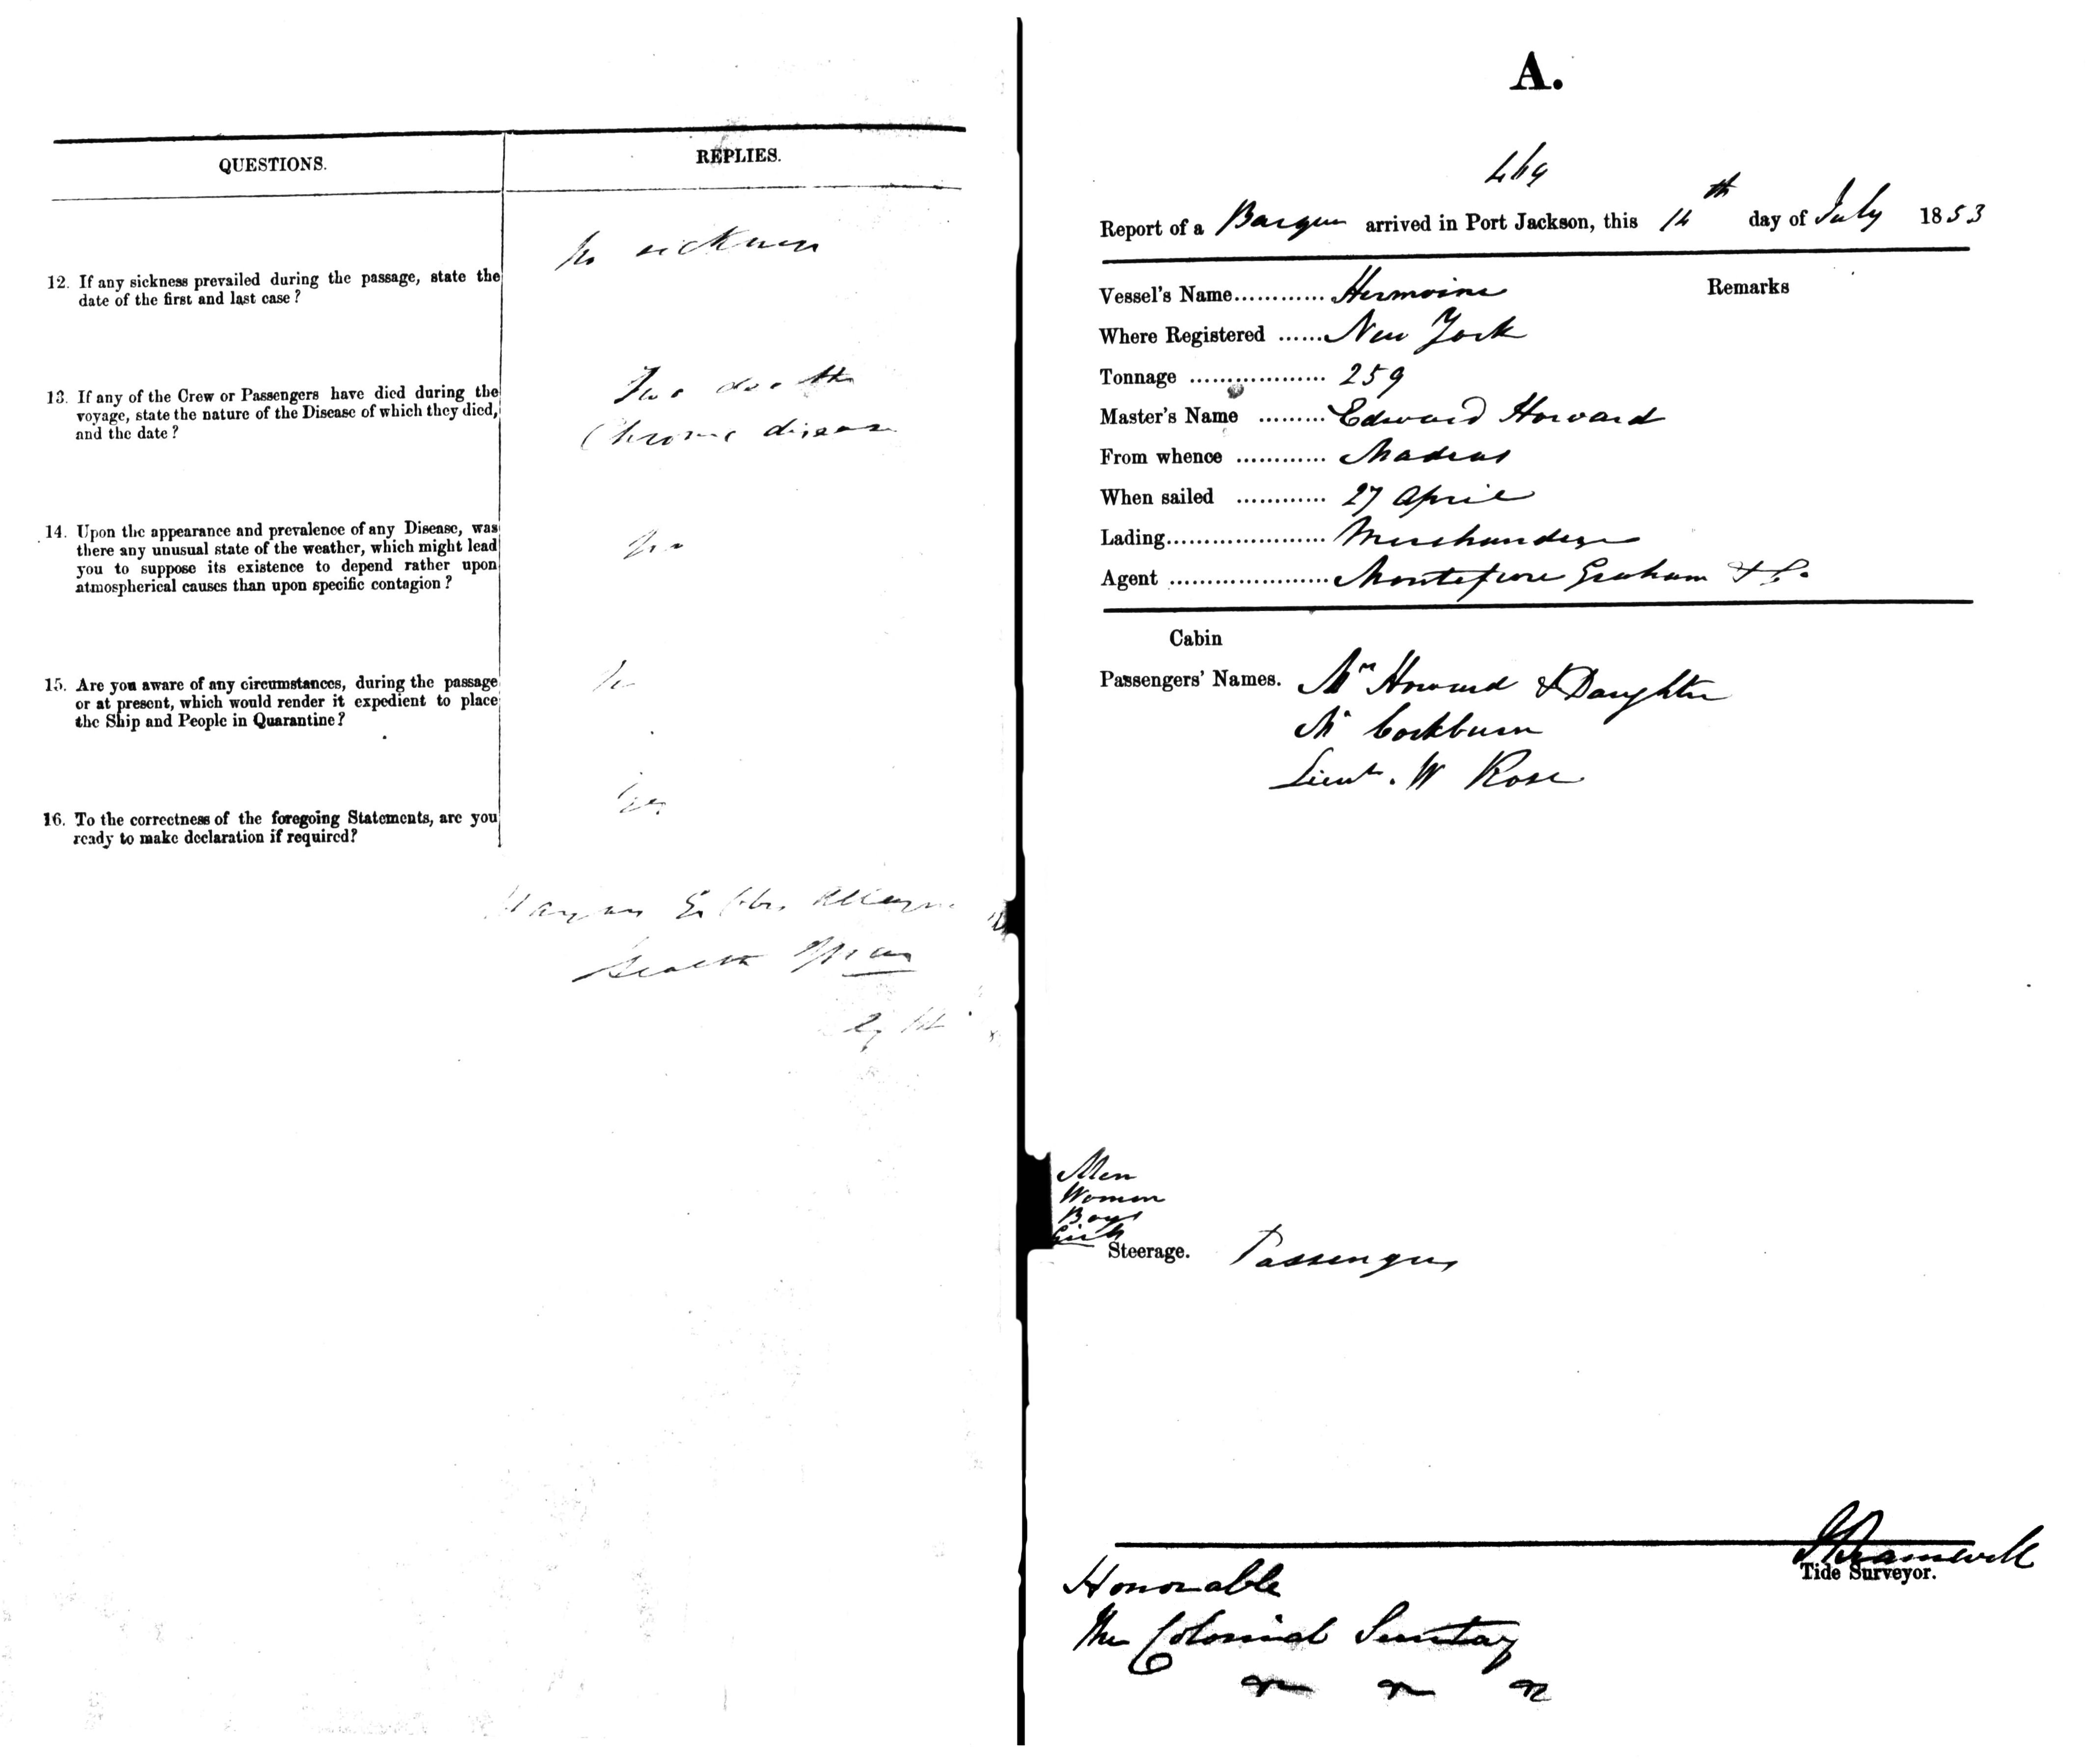 QUESTIONS.
REPLIES.
12. If any sickness prevailed during the passage, state the
date of the first and last case?
No sickness
13. If any of the Crew or Passengers have died during the
voyage, state the nature of the Disease of which they died,
and the date?
Two deaths
Chronic disease
14. Upon the appearance and prevalence of any Disease, was
there any unusual state of the weather, which might lead
you to suppose its existence to depend rather upon
atmospherical causes than upon specific contagion?
No
15. Are you aware of any circumstances, during the passage
or at present, which would render it expedient to place
the Ship and People in Quarantine?
No
16. To the correctness of the foregoing Statements, are you
ready to make declaration if required?
Yes
Haynes Gibbes Alleyne
Health Officer
A.
469
Report of a Barque arrived in Port Jackson, this 14th day of July 1853
Vessel's Name............ Hermoine Remarks
Where Registered ...... New York
Tonnage .................. 259
Master's Name ......... Edward Howard
From whence ............ Madras
When sailed ............ 27 April
Lading..................... Merchandize
Agent ..................... Montefiore Graham & Co.
Cabin
Passengers' Names. Mrs Howard & Daughter
Mr Cockburn
Lieut. W Rose
Men
Women
Boys
Girls
Steerage. Passengers
Bramwell
Tide Surveyor.
Honorable
The Colonial Secretary